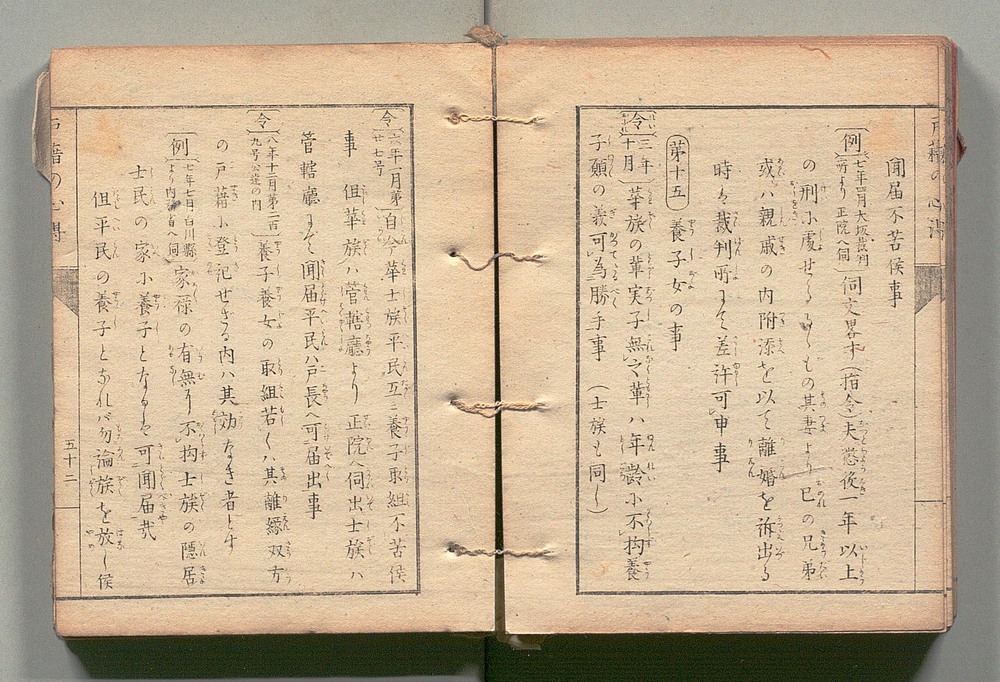 聞届不苦候事
例 七年四月大坂裁判所より正院へ伺 伺文畧末(指令)夫懲役一年以上
の刑に處せらるゝもの其妻より己の兄弟
或ハ親戚の内附添を以て離婚を訴出る
時ハ裁判所にて差許可申事
第十五 養子女の事
令 三年十月 華族の輩実子無之輩ハ年齢に不拘養
子願の義可為勝手事 (士族も同し)
戸籍の心得
令 六年一月第廿七号 自今華士族平民互ニ養子取組不苦候
事 但華族ハ管轄廳より正院へ伺出士族ハ
管轄廳にて聞届平民ハ戸長へ可届出事
令 八年十二月第二百九号公達の内 養子養女の取組若くハ其離縁双方
の戸籍に登記せざる内ハ其効なき者とす
例 七年七月白川縣より内務省へ伺 家禄の有無に不拘士族の隠居
士民の家に養子となるも可聞届哉
但平民の養子となれバ勿論族を放し候
戸籍の心得
五十二